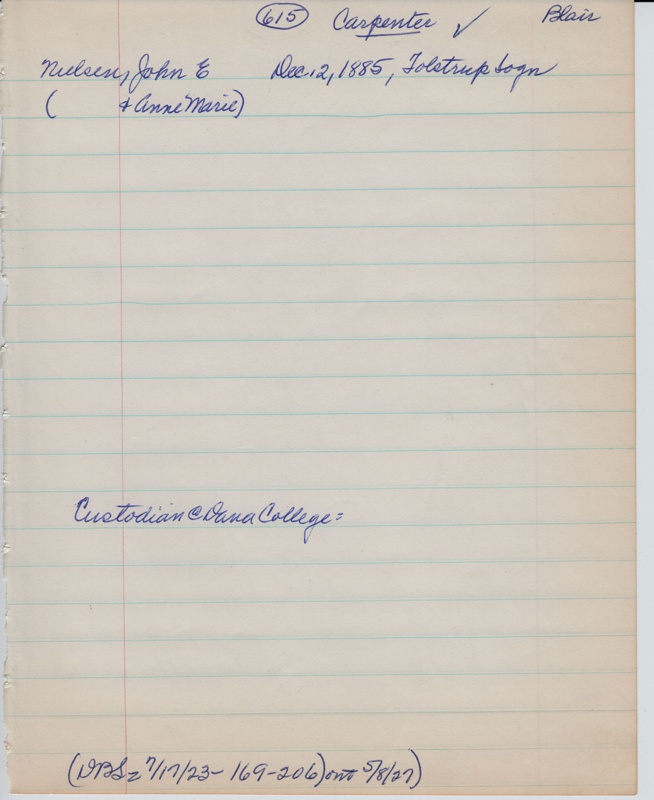 615 Carpenter ✓ Blair
Nielsen, John E Dec. 2, 1885, Tolstrup Sogn
( & Anne Marie)
Custodian @ Dana College=
(DBS= 7/17/23- 169-206) 5/8/27)